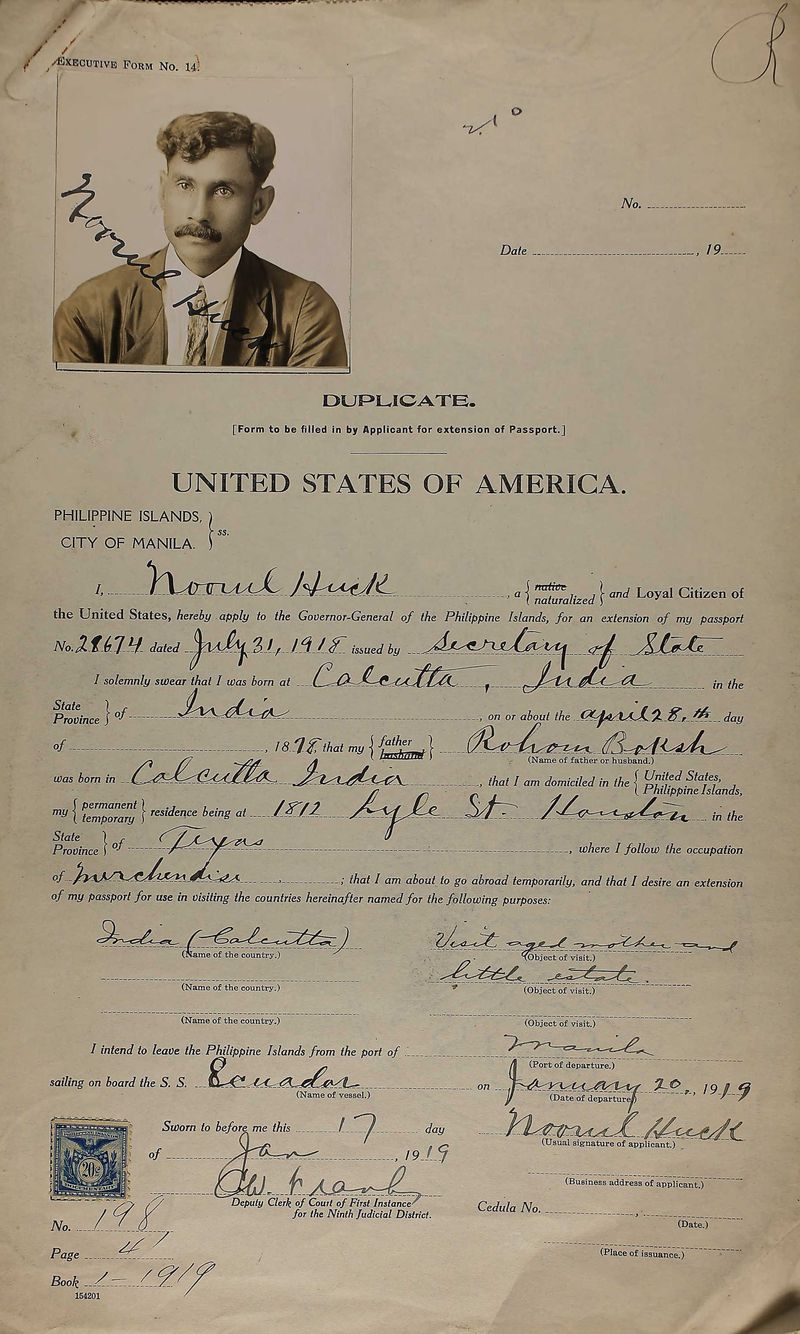 EXECUTIVE FORM No. 14.
R
Noorul Huck
No.
Date , 19
DUPLICATE.
[Form to be filled in by Applicant for extension of Passport.]
UNITED STATES OF AMERICA.
PHILIPPINE ISLANDS,
CITY OF MANILA. } ss.
I, Noorul Huck , a { native naturalized } and Loyal Citizen of
the United States, hereby apply to the Governor-General of the Philippine Islands, for an extension of my passport
No. 28674 dated July 31, 1918 issued by Secretary of State
I solemnly swear that I was born at Calcutta, India in the
State Province } of India , on or about the april 28,th day
of , 1878, that my { father husband } Rohom Boksh
(Name of father or husband.)
was born in Calcutta India , that I am domiciled in the { United States, Philippine Islands,
my { permanent temporary } residence being at 1812 Lyle St. Houston in the
State Province } of Texas , where I follow the occupation
of Merchendise ; that I am about to go abroad temporarily, and that I desire an extension
of my passport for use in visiting the countries hereinafter named for the following purposes:
India (Calcutta) Visit aged mother and
(Name of the country.) (Object of visit.)
little estate.
(Name of the country.) (Object of visit.)
(Name of the country.) (Object of visit.)
I intend to leave the Philippine Islands from the port of Manila
(Port of departure.)
sailing on board the S. S. Ecuador on January 20, 1919
(Name of vessel.) (Date of departure)
Sworn to before me this 17 day Noorul Huck
(Usual signature of applicant.)
of Jan , 1919
(Business address of applicant.)
Deputy Clerk of Court of First Instance
for the Ninth Judicial District.
Cedula No. ,
(Date.)
(Place of issuance.)
20c
No. 198
Page 41
Book 1-1919
154201